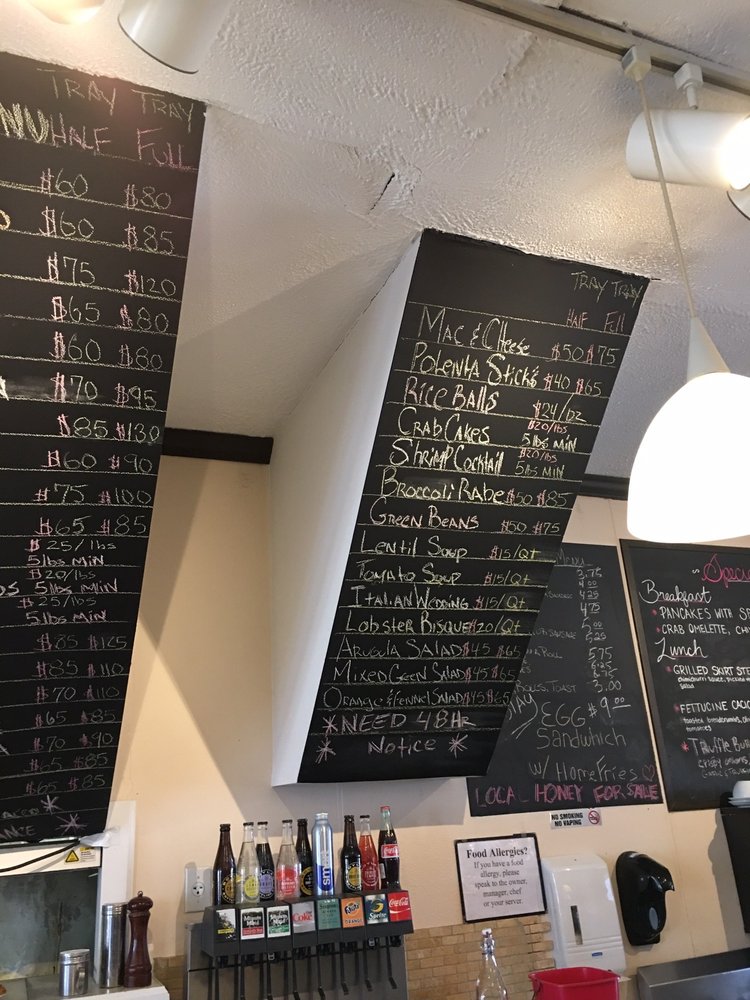 TRAY TRAY
NU HALF FULL
$60 $80
$60 $85
$75 $120
$65 $80
$60 $80
$70 $95
$85 $130
$60 $90
$75 $100
$65 $85
$25/lbs
5lbs MIN
$20/lbs
5lbs MIN
$25/lbs
5lbs MIN
$85 $125
$85 $110
$70 $110
$65 $85
$70 $90
$65 $85
$65 $85
TRAY TRAY
HALF Full
MAC & CHEESE $50 $75
POLENTA STICKS $40 $65
RICE BALLS $24/DZ
CRAB CAKES $20/lbs 5lbs MIN
SHRIMP COCKTAIL $20/lbs 5lbs MIN
BROCCOLI RABE $50 $85
GREEN BEANS $50 $75
LENTIL SOUP $15/Qt
TOMATO SOUP $15/Qt
ITALIAN WEDDING $15/Qt
LOBSTER BISQUE $20/Qt
ARUGULA SALAD $45 $65
MIXED GREEN SALAD $45 $65
ORANGE & FENNEL SALAD $45 $65
*NEED 48HR
* NOTICE *
MENU
3.75
4.00
4.75
5.00
5.25
5.75
6.25
6.75
TOAST 3.00
EGG $9.00
SANDWHICH
W/ HOMEFRIES
LOCAL HONEY FOR SALE
Breakfast
* PANCAKES WITH
* CRAB OMELETTE,
Lunch
* GRILLED SKIRT
SALAD
* FETTUCINE
* TRUFFLE
NO SMOKING
NO VAPING
Food Allergies?
If you have a food
allergy, please
speak to the owner,
manager, chef
or your server.
Coke
ORANGE
Sprite
Coca-Cola